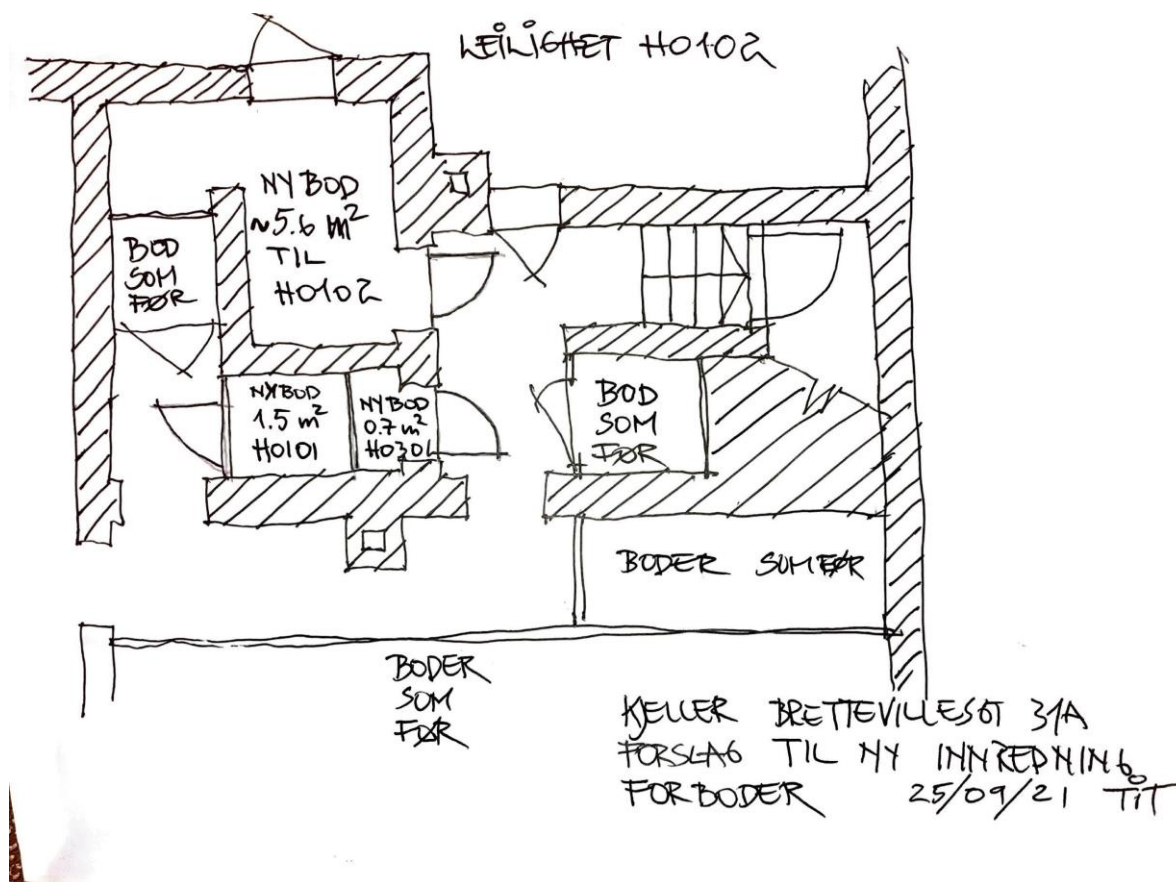 LEILIGHET H0102
NY BOD
~5.6 m²
TIL
H0102
BOD
SOM
FØR
NY BOD
1.5 m²
H0101
NY BOD
0.7 m²
H0301
BOD
SOM
FØR
BODER SOM FØR
BODER
SOM
FØR
KJELLER BRETTEVILLESGT 31A
FORSLAG TIL NY INNREDNING
FOR BODER 25/09/21 TiT